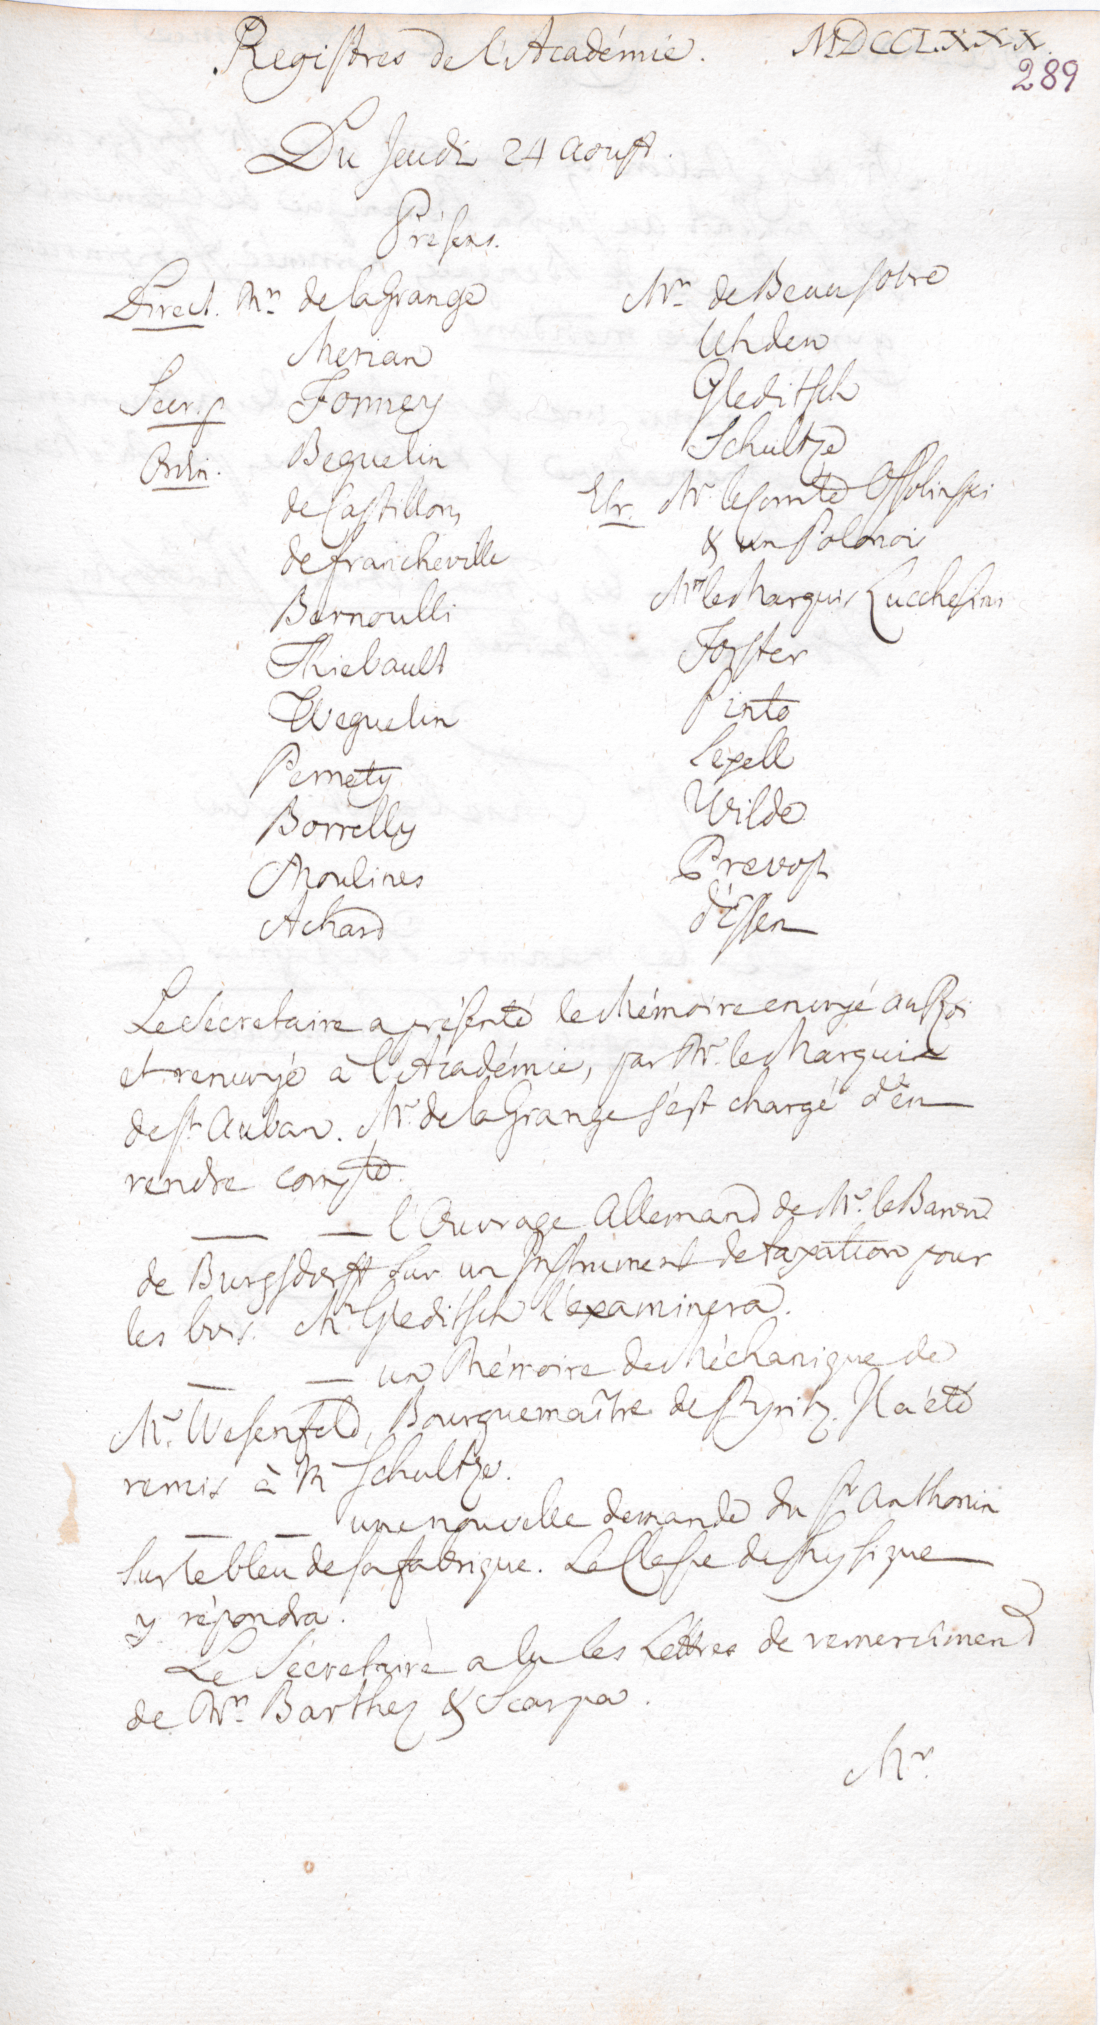 Registres de l'Académie. MDCCLXXX.
289
Du Jeudi 24 Aoust.
Présens.
Direct. Mrs de la Grange
Merian
Secr. p Formey
Ordin. Beguelin
de Castillon
de Francheville
Bernoulli
Thiebault
Weguelin
Pernety
Borrelly
Moulines
Achard
Mrs de Beausobre
Uhden
Gleditsch
Schultze
Etr. Mr. le Comte Ossolinski
& un Polonois
Mrs le Marquis Lucchesini
Forster
Pinto
Lexell
Wilde
Prevost
d'Essen
Le Sécretaire a présenté le Mémoire envoyé au Roi
et renvoyé à l'Académie, par Mr. le Marquis
de St Auban. Mr. de la Grange s'est chargé d'en
rendre compte.
— — l'Ouvrage Allemand de Mr. le Baron
de Burgsdorff sur un Instrument de taxation pour
les bois. Mr Gleditsch l'examinera.
— — un Mémoire de Méchanique de
Mr. Wesenfeld, Bourguemaître de Pyritz. Il a été
remis à M Schultze.
— — une nouvelle demande du Sr Anthonin
sur le bleu de sa fabrique. La Classe de Physique
y répondra.
Le Sécretaire a lu les Lettres de remerciment
de Mrs Barthez & Scarpa.
Mr.